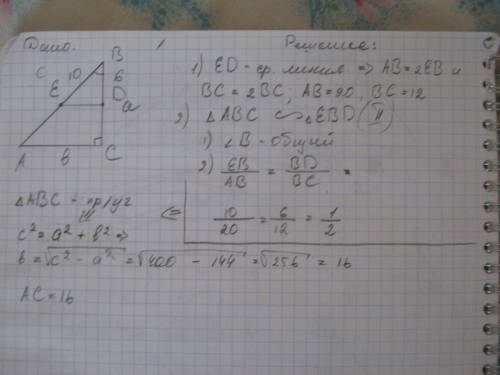 Дано.
Решение:
B
C 10 6
E D
a
A в C
1) ED - ср. линия => AB = 2EB и
BC = 2BC; AB = 20, BC = 12
2) △ABC ∽ △EBD (II)
1) ∠B - общий
2) EB/AB = BD/BC =
<= 10/20 = 6/12 = 1/2
△ABC - пр/уг
c² = a² + в² =>
в = √c² - a² = √400 - 144 = √256 = 16
AC = 16